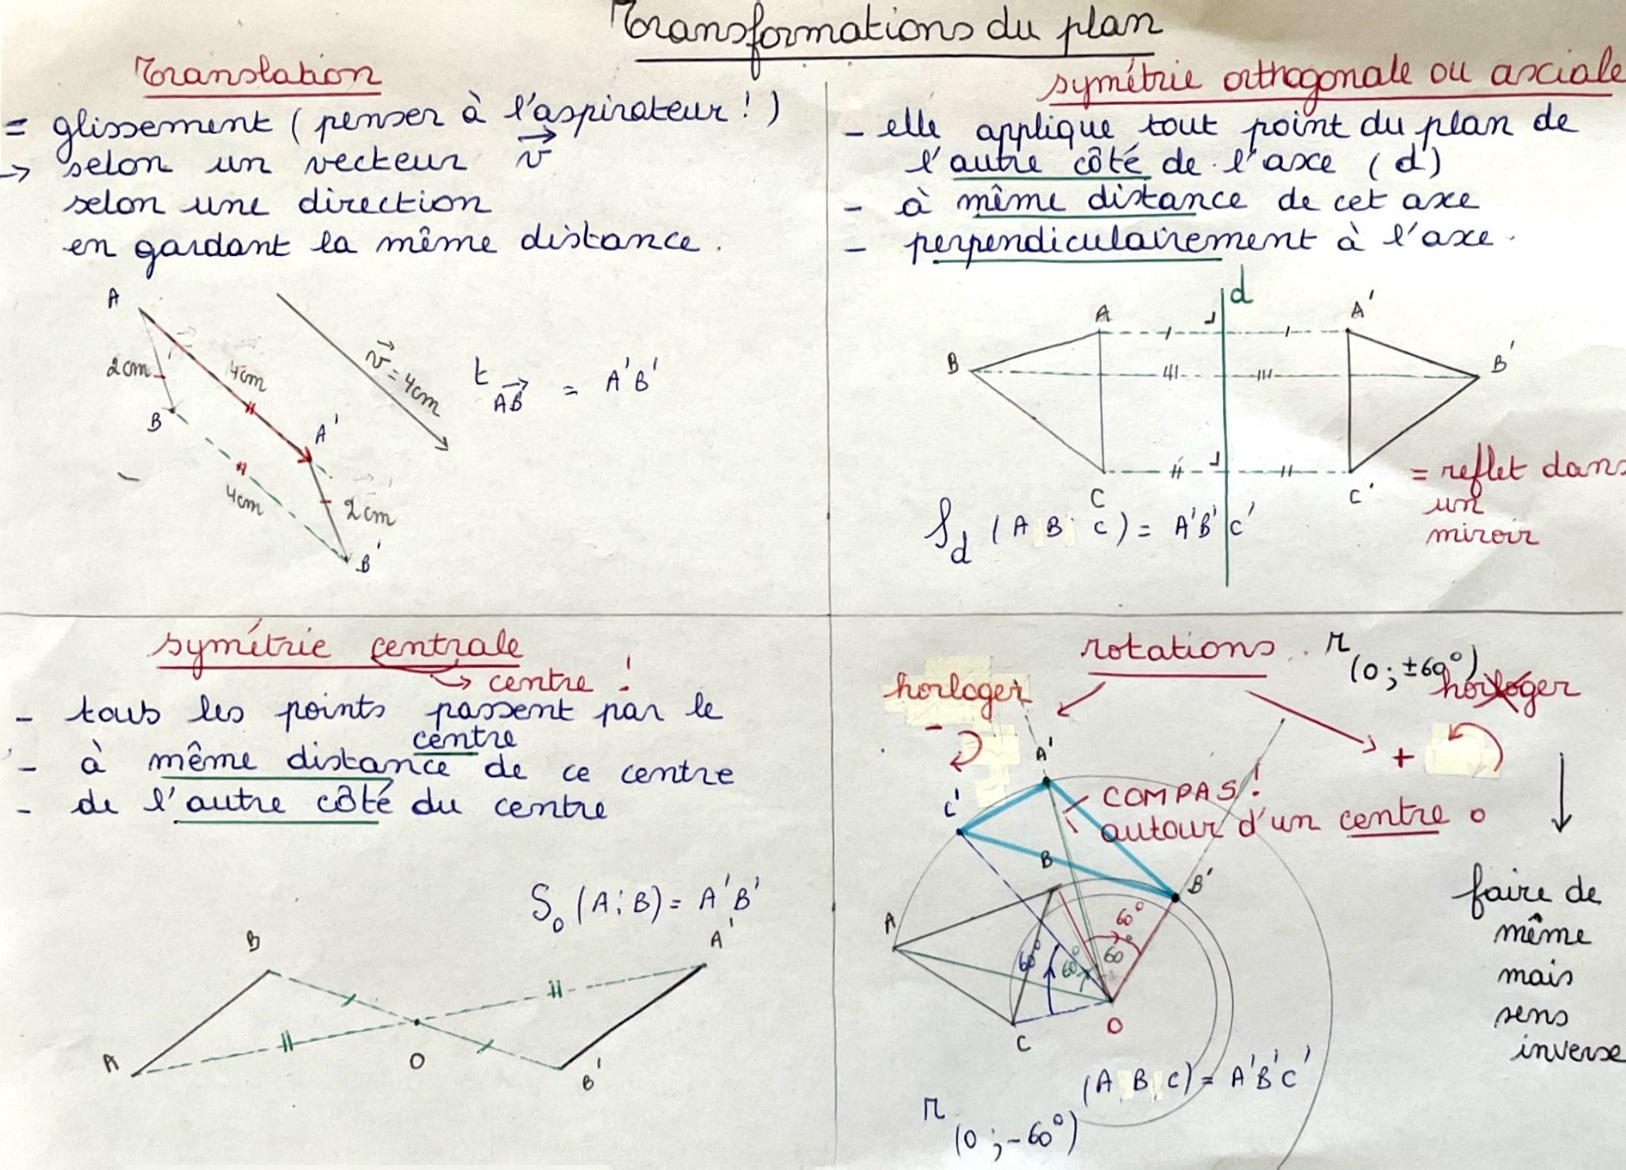 Transformations du plan
Translation
= glissement (penser à l'aspirateur !)
→ selon un vecteur v
selon une direction
en gardant la même distance.
A
2cm
B
4cm
A'
4cm
2cm
B'
v = 4cm
t AB = A'B'
symétrie orthogonale ou axciale
- elle applique tout point du plan de
l'autre côté de l'axe (d)
- à même distance de cet axe
- perpendiculairement à l'axe.
d
A
A'
B
B'
C
C'
= reflet dans
un
miroir
S d (A B C) = A'B'C'
symétrie centrale
→ centre !
- tous les points passent par le
centre
- à même distance de ce centre
- de l'autre côté du centre
S o (A; B) = A'B'
B
A'
A
O
B'
rotations . r (O ; ±60°)
horloger
horloger
-
+
A'
C'
COMPAS !
autour d'un centre o
B
B'
A
60°
60°
60°
60°
C
O
faire de
même
mais
sens
inverse
r (O ; -60°) (A B C) = A'B'C'